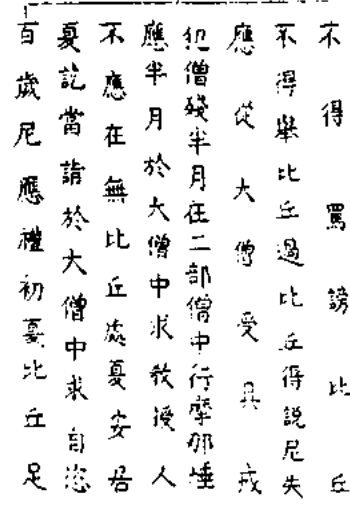 不得罵謗比丘
不得舉比丘過比丘得説尼失
應從大僧受具戒
犯僧殘半月在二部僧中行摩那埵
應半月於大僧中求教授人
不應在無比丘處夏安居
夏訖當詣於大僧中求自恣
百歲尼應禮初夏比丘足